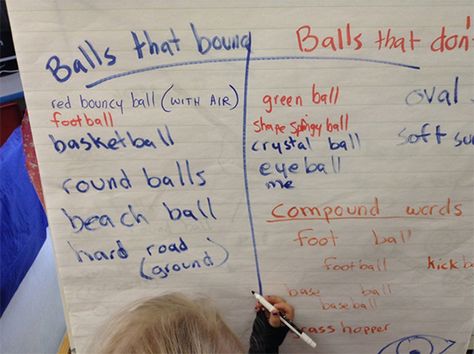 Balls that bound
red bouncy ball (WITH AIR)
football
basketball
round balls
beach ball
hard road
(ground)
Balls that don'
green ball
shape springy ball
crystal ball
eyeball
me
oval
soft su
compound words
foot ball
football
kick b
base ball
baseball
rass hopper